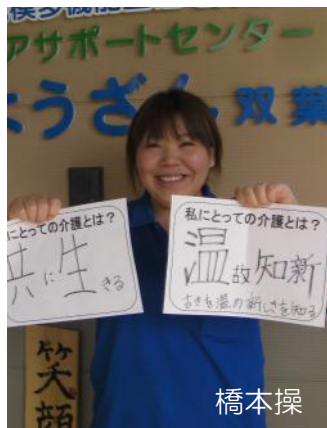 アサポートセンター
ようざん 双葉
にとっての介護とは？
共に生きる
私にとっての介護とは？
温故知新
古きを温め新しきを知る
笑顔
橋本操